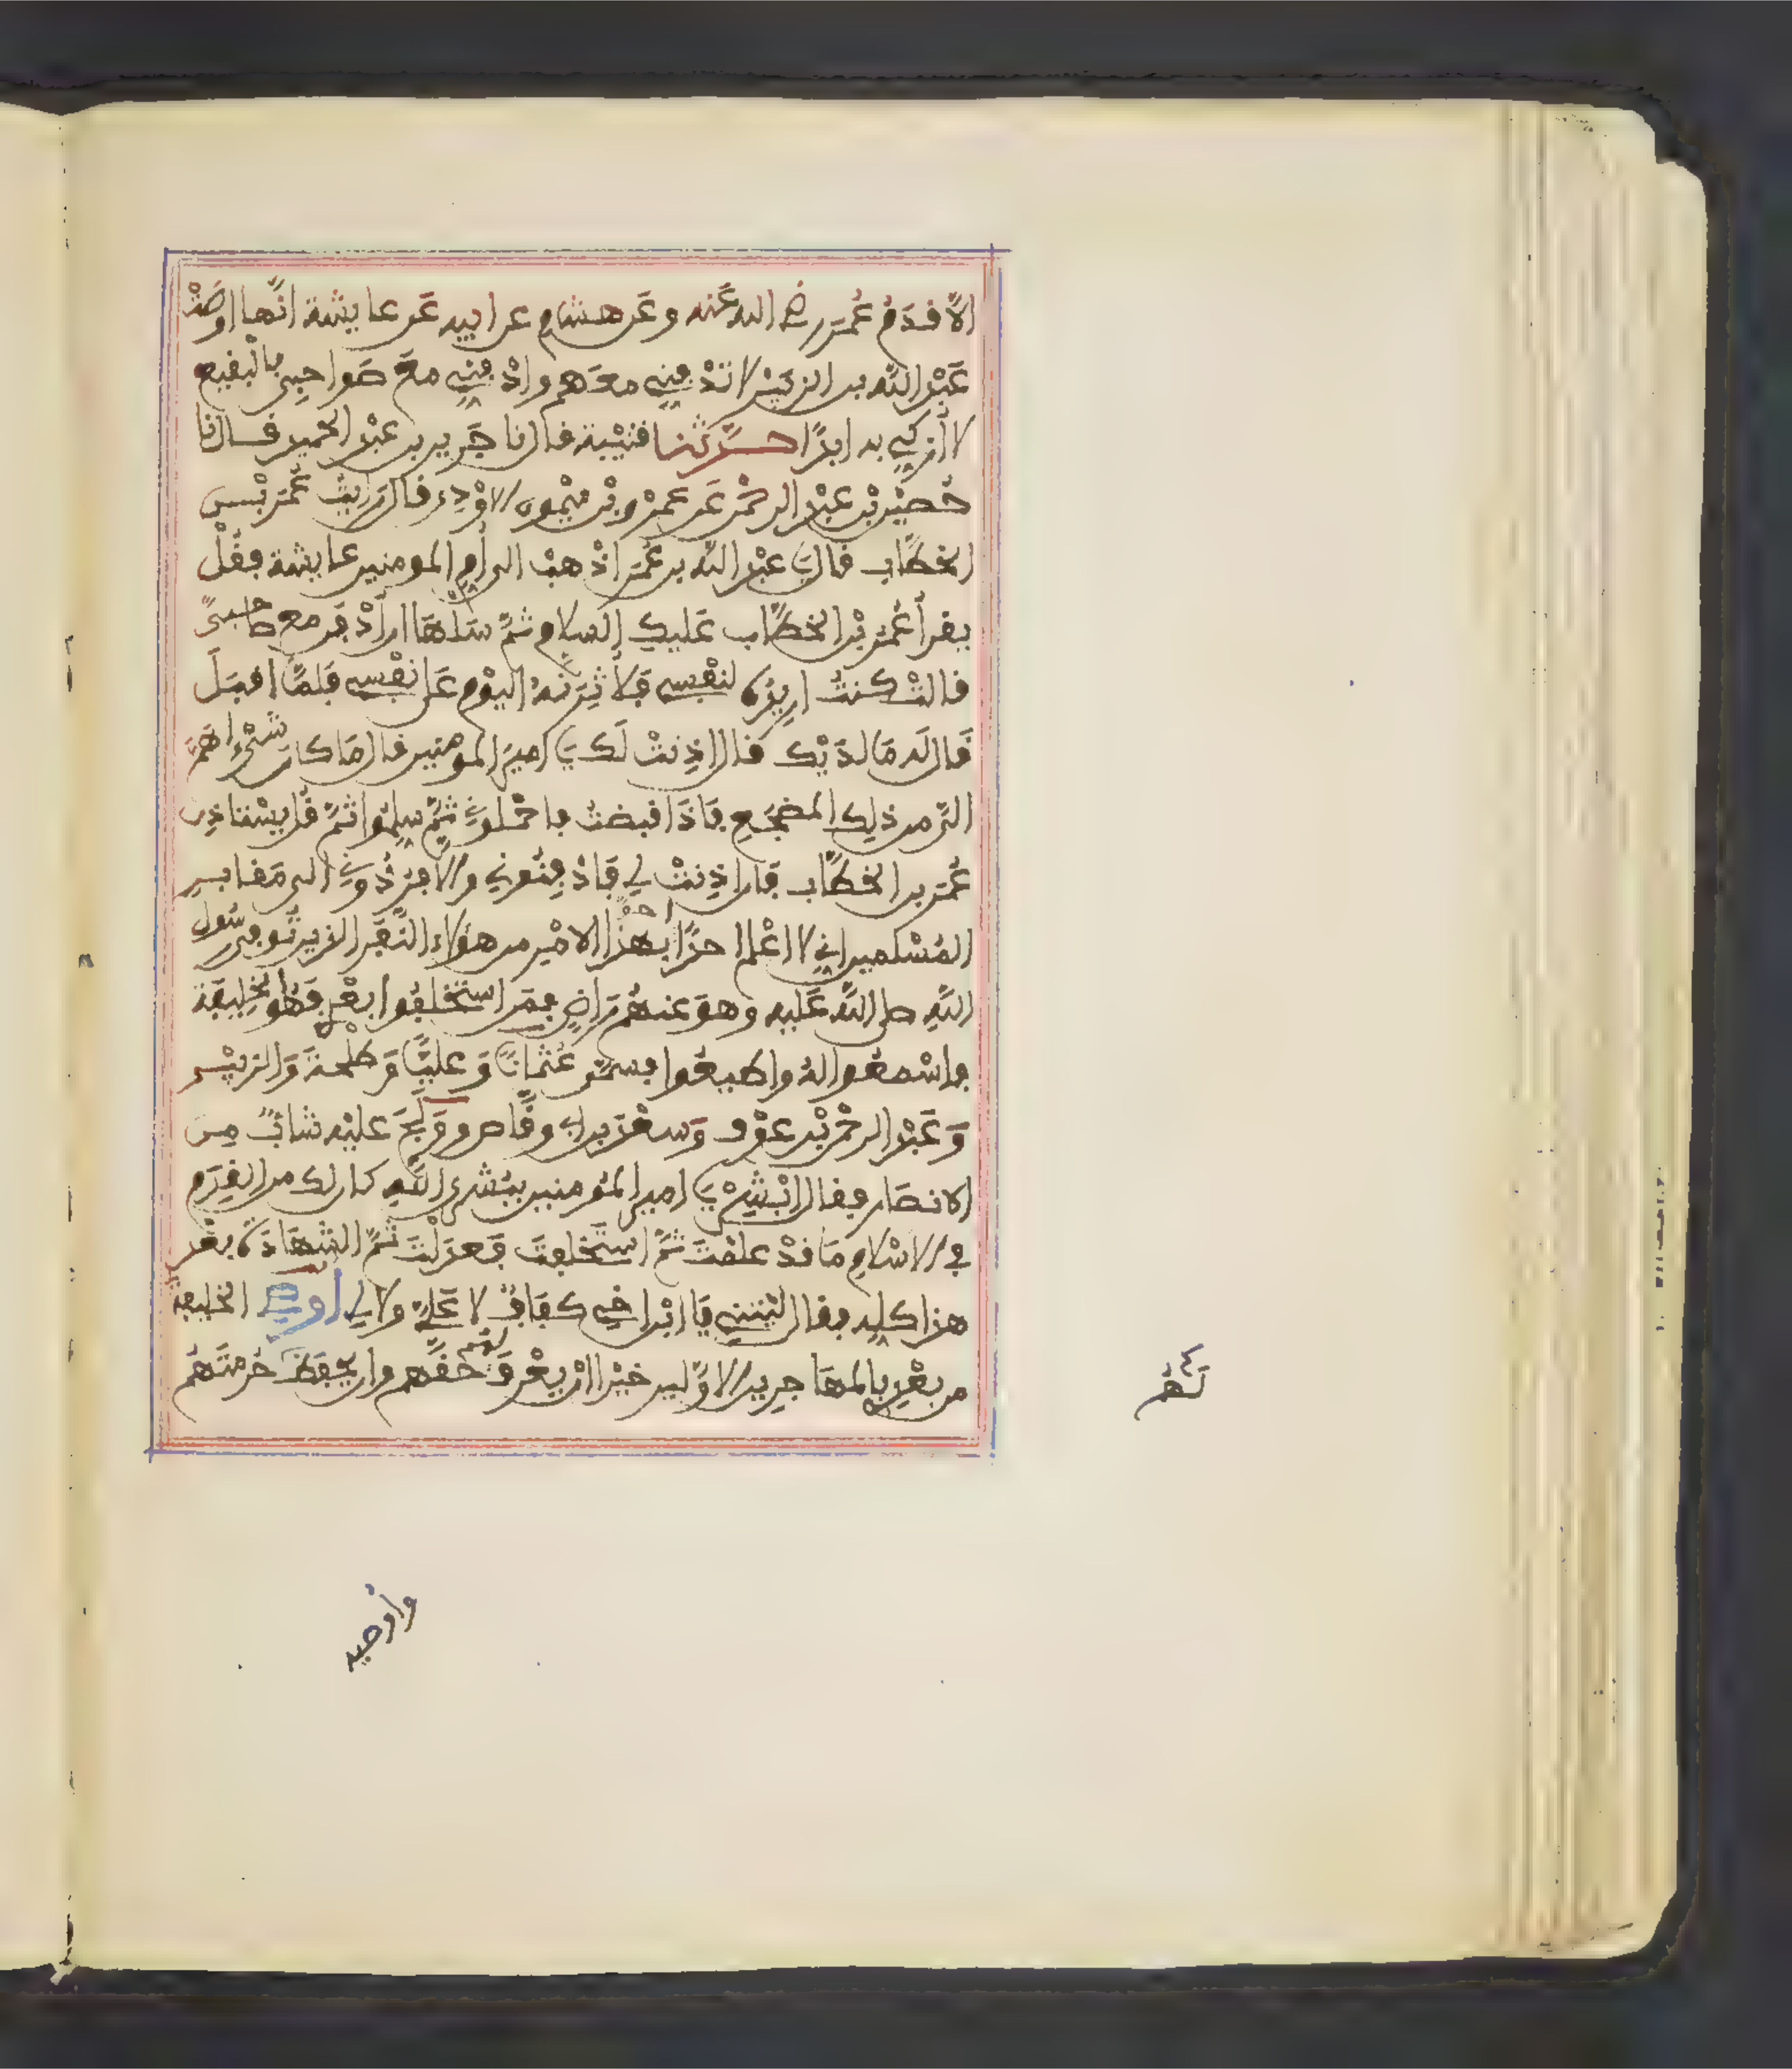 الا قدم عمر رضي الله عنه وعن هشام عن ابيه عن عايشة انها اوصت
عبد الله بن الزبير لا تدفني معهم وادفني مع صواحبي بالبقيع
لا أزكى به ابدا حدثنا قتيبة قال نا جرير بن عبد الحميد قال نا
حصين بن عبد الرحمن عن عمرو بن ميمون الاودي قال رايت عمر بن
الخطاب قال يا عبد الله بن عمر اذهب الى أم المومنين عايشة فقل
يقرأ عمر بن الخطاب عليك السلام ثم سلها ان أدفن مع صاحبي
قالت كنت اريده لنفسي فلأوثرنه اليوم على نفسي فلما اقبل
قال له ما لديك قال اذنت لك يا امير المومنين قال ما كان شيء اهم
الي من ذلك المضجع فاذا قبضت فاحملوني ثم سلموا ثم قل يستاذن
عمر بن الخطاب فان اذنت لي فادفنوني والا فردوني الى مقابر
المسلمين اني لا اعلم احدا احق بهذا الامر من هؤلاء النفر الذين توفي رسول
الله صلى الله عليه وهو عنهم راض فمن استخلفوا بعدي فهو الخليفة
فاسمعوا له واطيعوا فسمى عثمان وعليا وطلحة والزبير
وعبد الرحمن بن عوف وسعد بن ابي وقاص وولج عليه شاب من
الانصار فقال ابشر يا امير المؤمنين ببشرى الله كان لك من القدم
في الاسلام ما قد علمت ثم استخلفت فعدلت ثم الشهادة بعد
هذا كله فقال ليتني يا ابن اخي كفاف لا علي ولا لي اوصي الخليفة
من بعدي بالمهاجرين الاولين خيرا ان يعرف لهم حقهم وان يحفظ حرمتهم
لهم
واوصيه